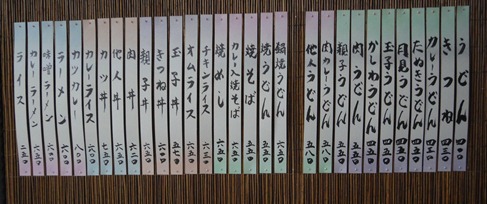 うどん 四〇〇
きつね 四三〇
カレーうどん 四五〇
たぬきうどん 四五〇
月見うどん 四五〇
玉子うどん 四五〇
かしわうどん 五五〇
肉うどん 五五〇
親子うどん 五五〇
肉カレーうどん 五八〇
他人うどん 五八〇
鍋焼うどん 六五〇
焼うどん 五五〇
焼そば 五五〇
カレー入焼そば 六五〇
焼めし 六〇〇
チキンライス 六三〇
オムライス 六五〇
玉子丼 五七〇
きつね丼
親子丼 六五〇
肉丼 六二〇
他人丼 六五〇
カツ丼 七五〇
カレーライス 六〇〇
カツカレー 八〇〇
ラーメン 六〇〇
味噌ラーメン
カレーラーメン
ライス 二五〇